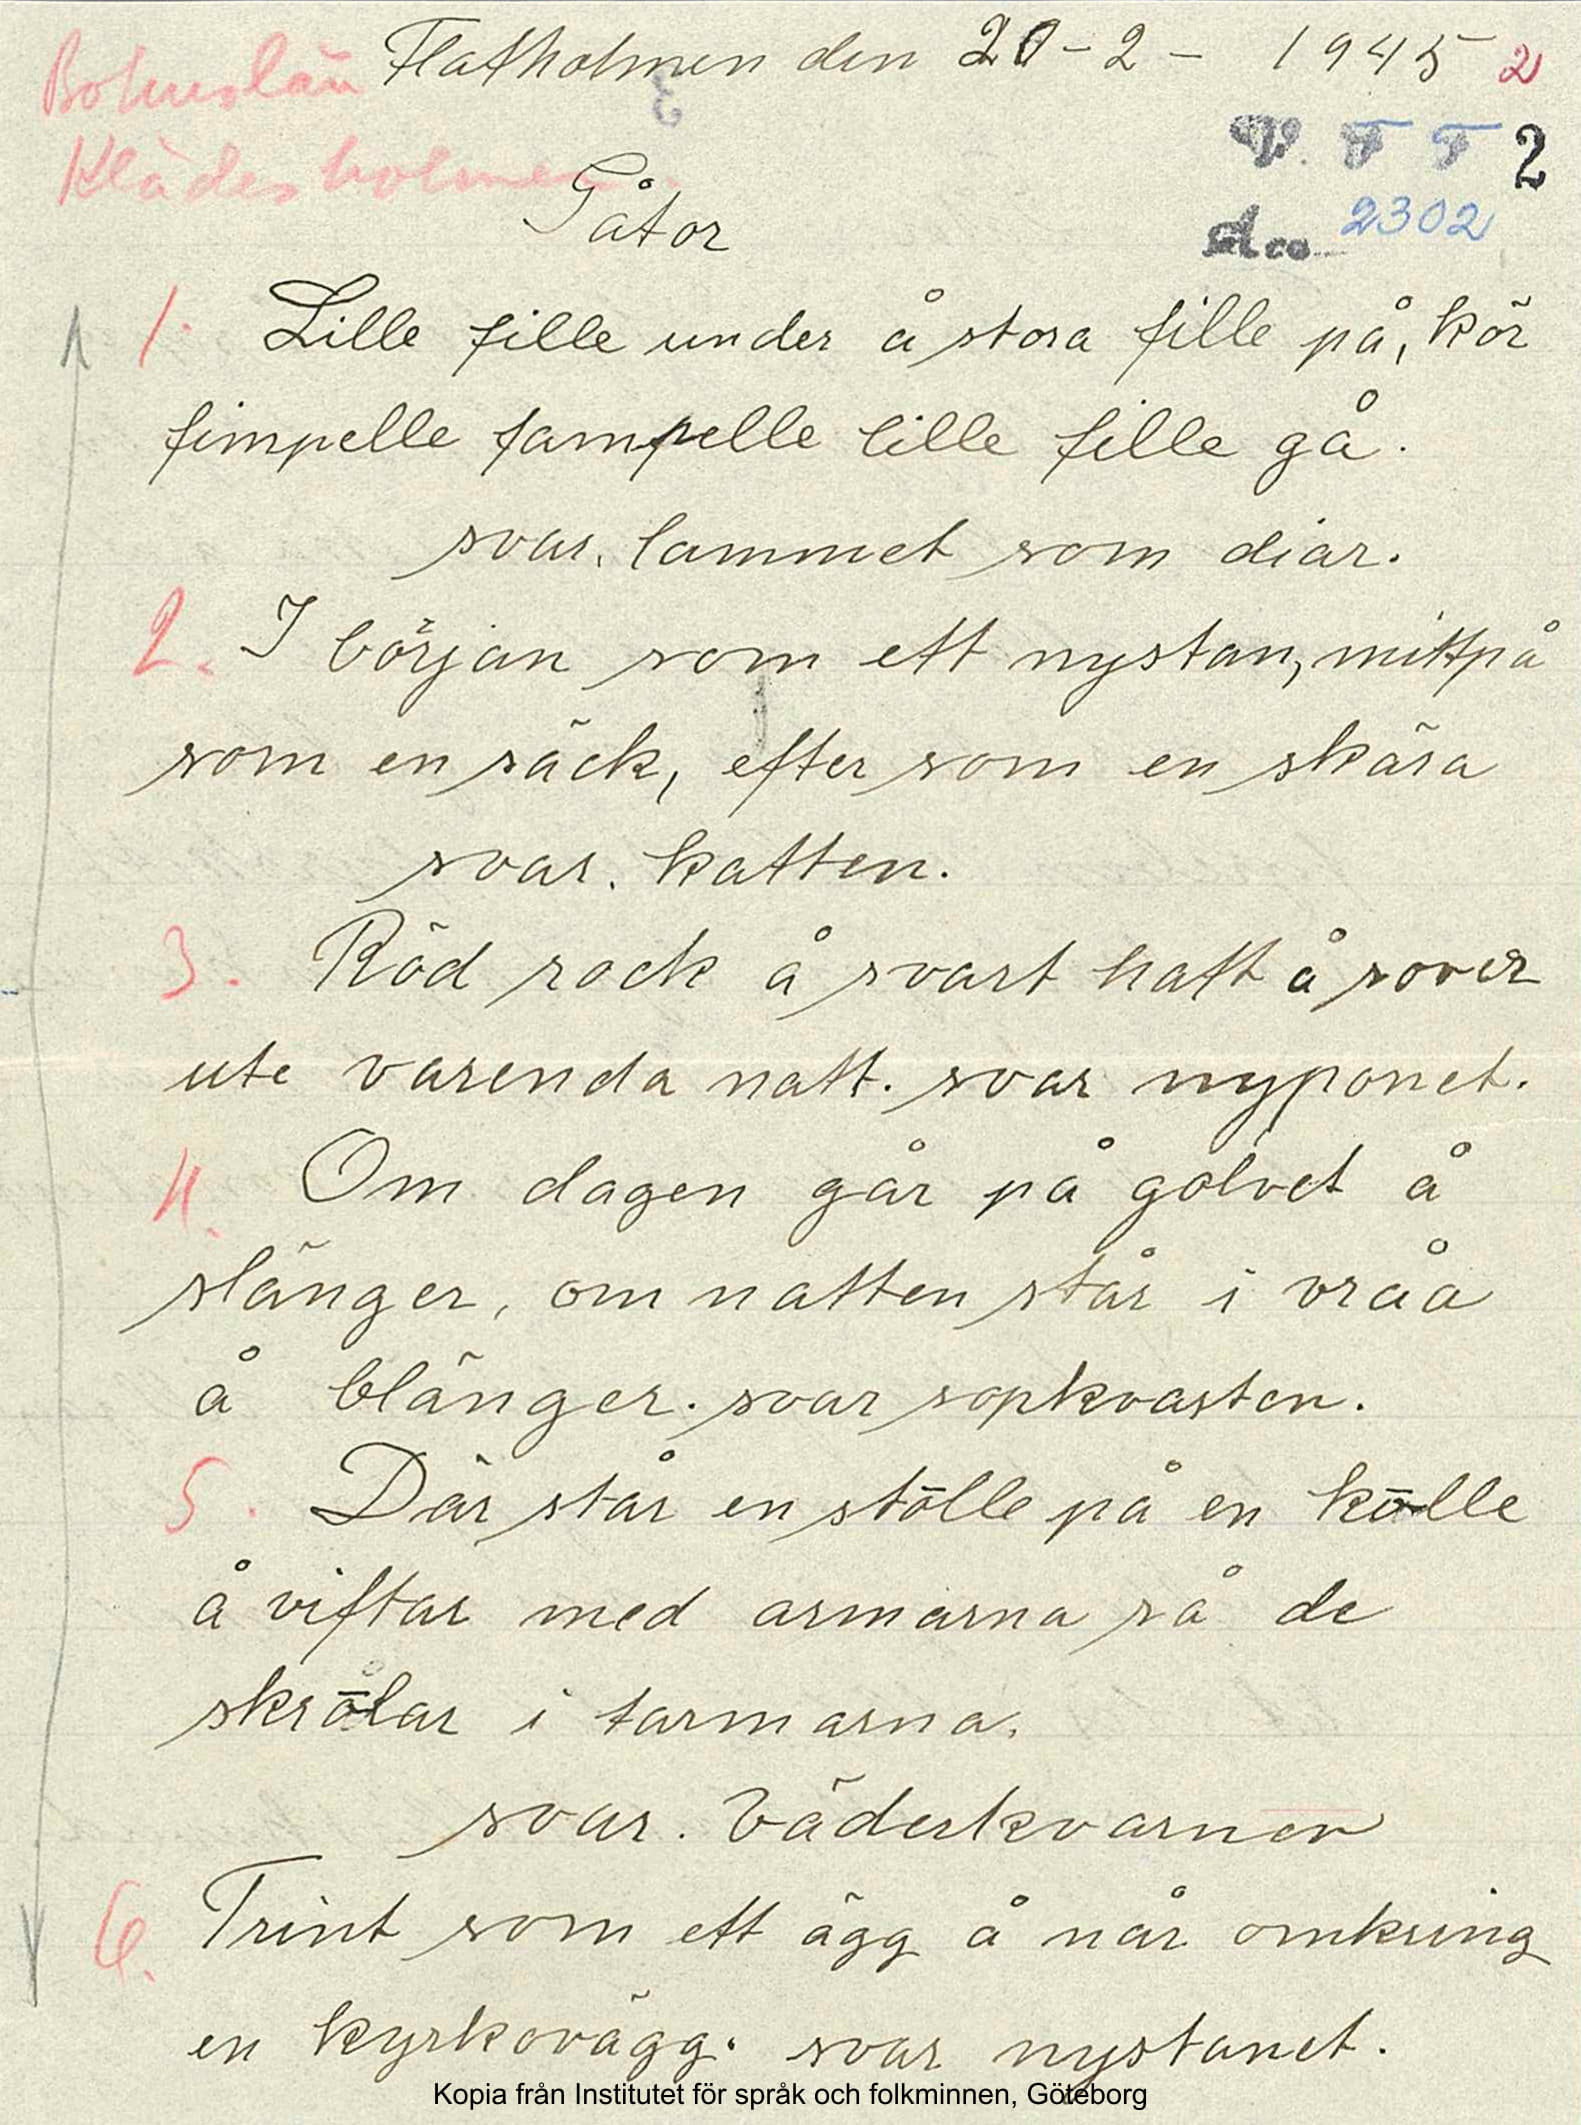 Bohuslän Flatholmen den 20-2-1945 2
Klädesholmen.
V. F F 2
Gåtor
Acc 2302
1. Lille fille under å stora fille på, kör
fimpelle fampelle lille fille gå.
svar. lammet som diar.
2. I början som ett nystan, mittpå
som en säck, efter som en skära
svar. katten.
3. Röd rock å svart hatt å sover
ute varenda natt. svar nyponet.
4. Om dagen går på golvet å
slänger, om natten står i vråa
å blänger. svar sopkvasten.
5. Där står en stölle på en kölle
å viftar med armarna så de
skrålar i tarmarna.
svar. Väderkvarnen
6. Trint som ett ägg å når omkring
en kyrkovägg. svar nystanet.
Kopia från Institutet för språk och folkminnen, Göteborg